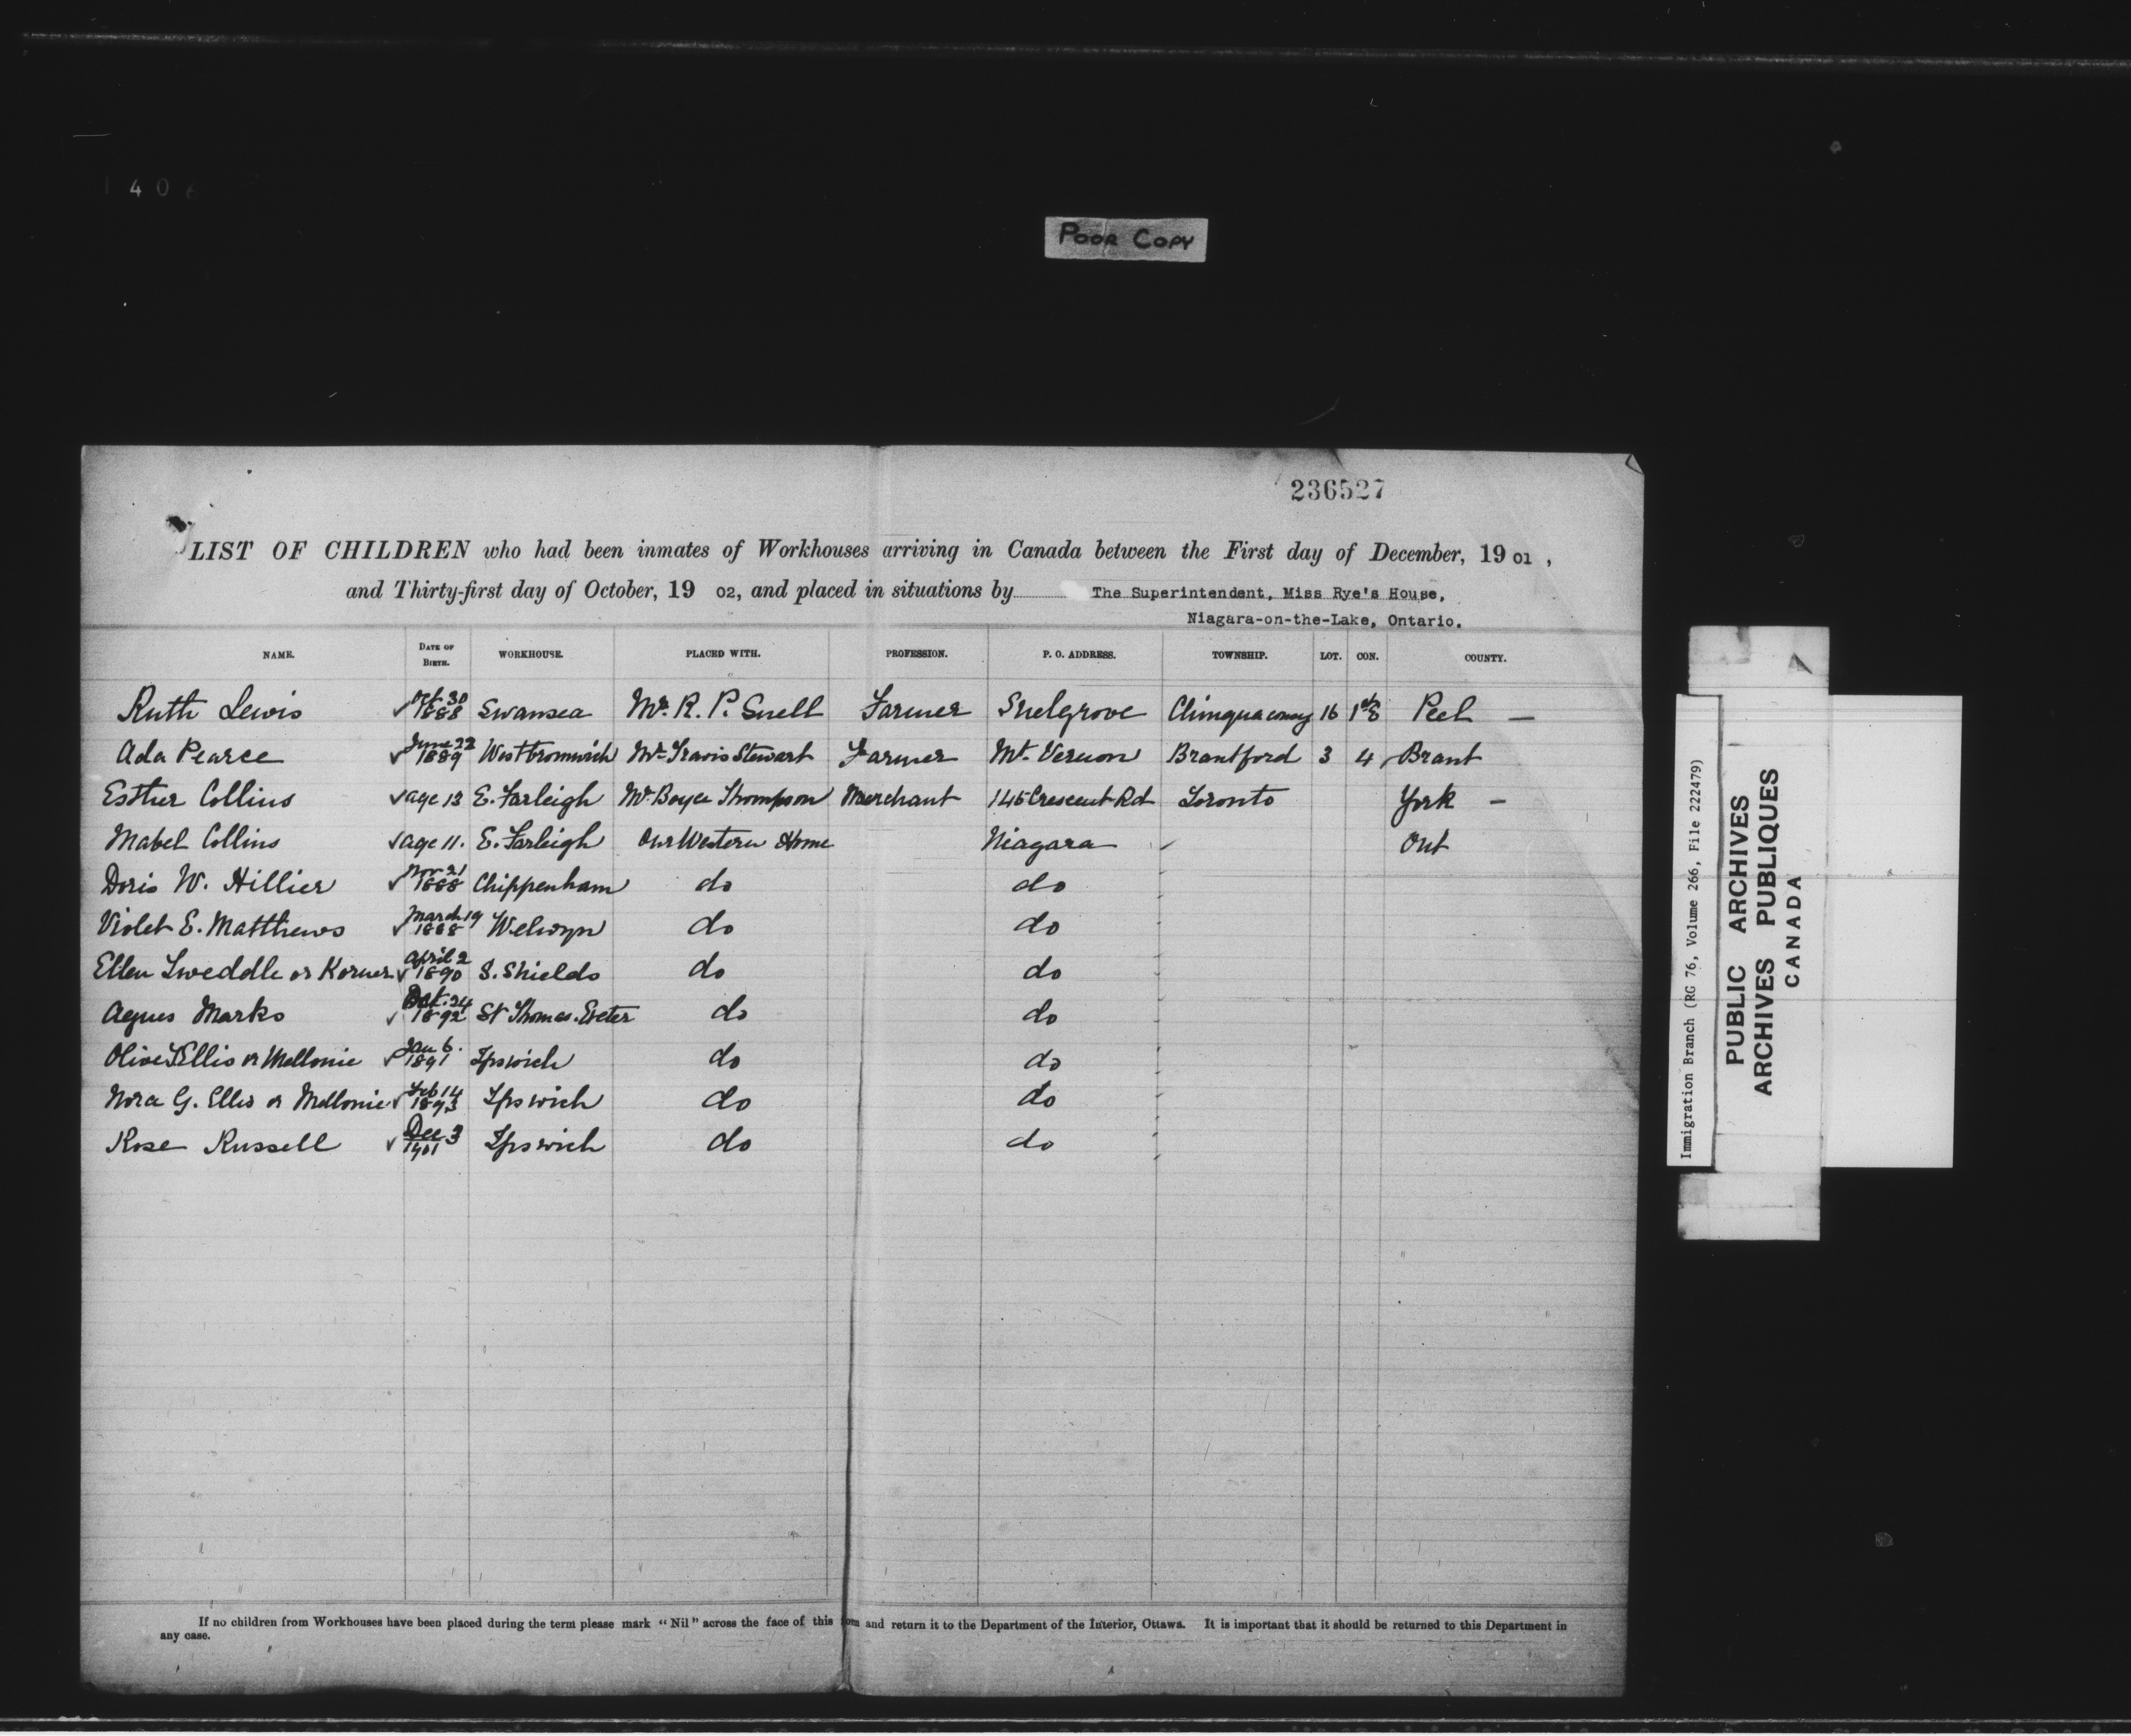 1406
POOR COPY
236527
LIST OF CHILDREN who had been inmates of Workhouses arriving in Canada between the First day of December, 19 01 ,
and Thirty-first day of October, 19 02, and placed in situations by The Superintendent, Miss Rye's House,
Niagara-on-the-Lake, Ontario.
NAME. DATE OF BIRTH. WORKHOUSE. PLACED WITH. PROFESSION. P. O. ADDRESS. TOWNSHIP. LOT. CON. COUNTY.
Ruth Lewis ✓ Oct. 30 1888 Swansea Mr. R. P. Snell Farmer Snelgrove Chinguacousy 16 1st Peel —
Ada Pearce ✓ June 22 1889 Westbromwich Mr. Travis Stewart Farmer Mt. Vernon Brantford 3 4 Brant
Esther Collins ✓ age 13 E. Farleigh Mr. Boyce Thompson Merchant 145 Crescent Rd Toronto York —
Mabel Collins ✓ age 11. E. Farleigh Our Western Home Niagara Ont
Doris W. Hillier ✓ Nov 21 1888 Chippenham do do
Violet E. Matthews ✓ March 19 1888 Welwyn do do
Ellen Tweddle or Korner ✓ April 2 1890 S. Shields do do
Agnes Marks ✓ Oct. 24 1892 St Thomas. Exeter do do
Olive Ellis or Mellonie ✓ Jan 6. 1891 Ipswich do do
Nora G. Ellis or Mellonie ✓ Feb 14 1893 Ipswich do do
Rose Russell ✓ Dec 3 1901 Ipswich do do
If no children from Workhouses have been placed during the term please mark "Nil" across the face of this form and return it to the Department of the Interior, Ottawa. It is important that it should be returned to this Department in
any case.
Immigration Branch (RG 76, Volume 266, File 222479)
PUBLIC ARCHIVES
ARCHIVES PUBLIQUES
CANADA